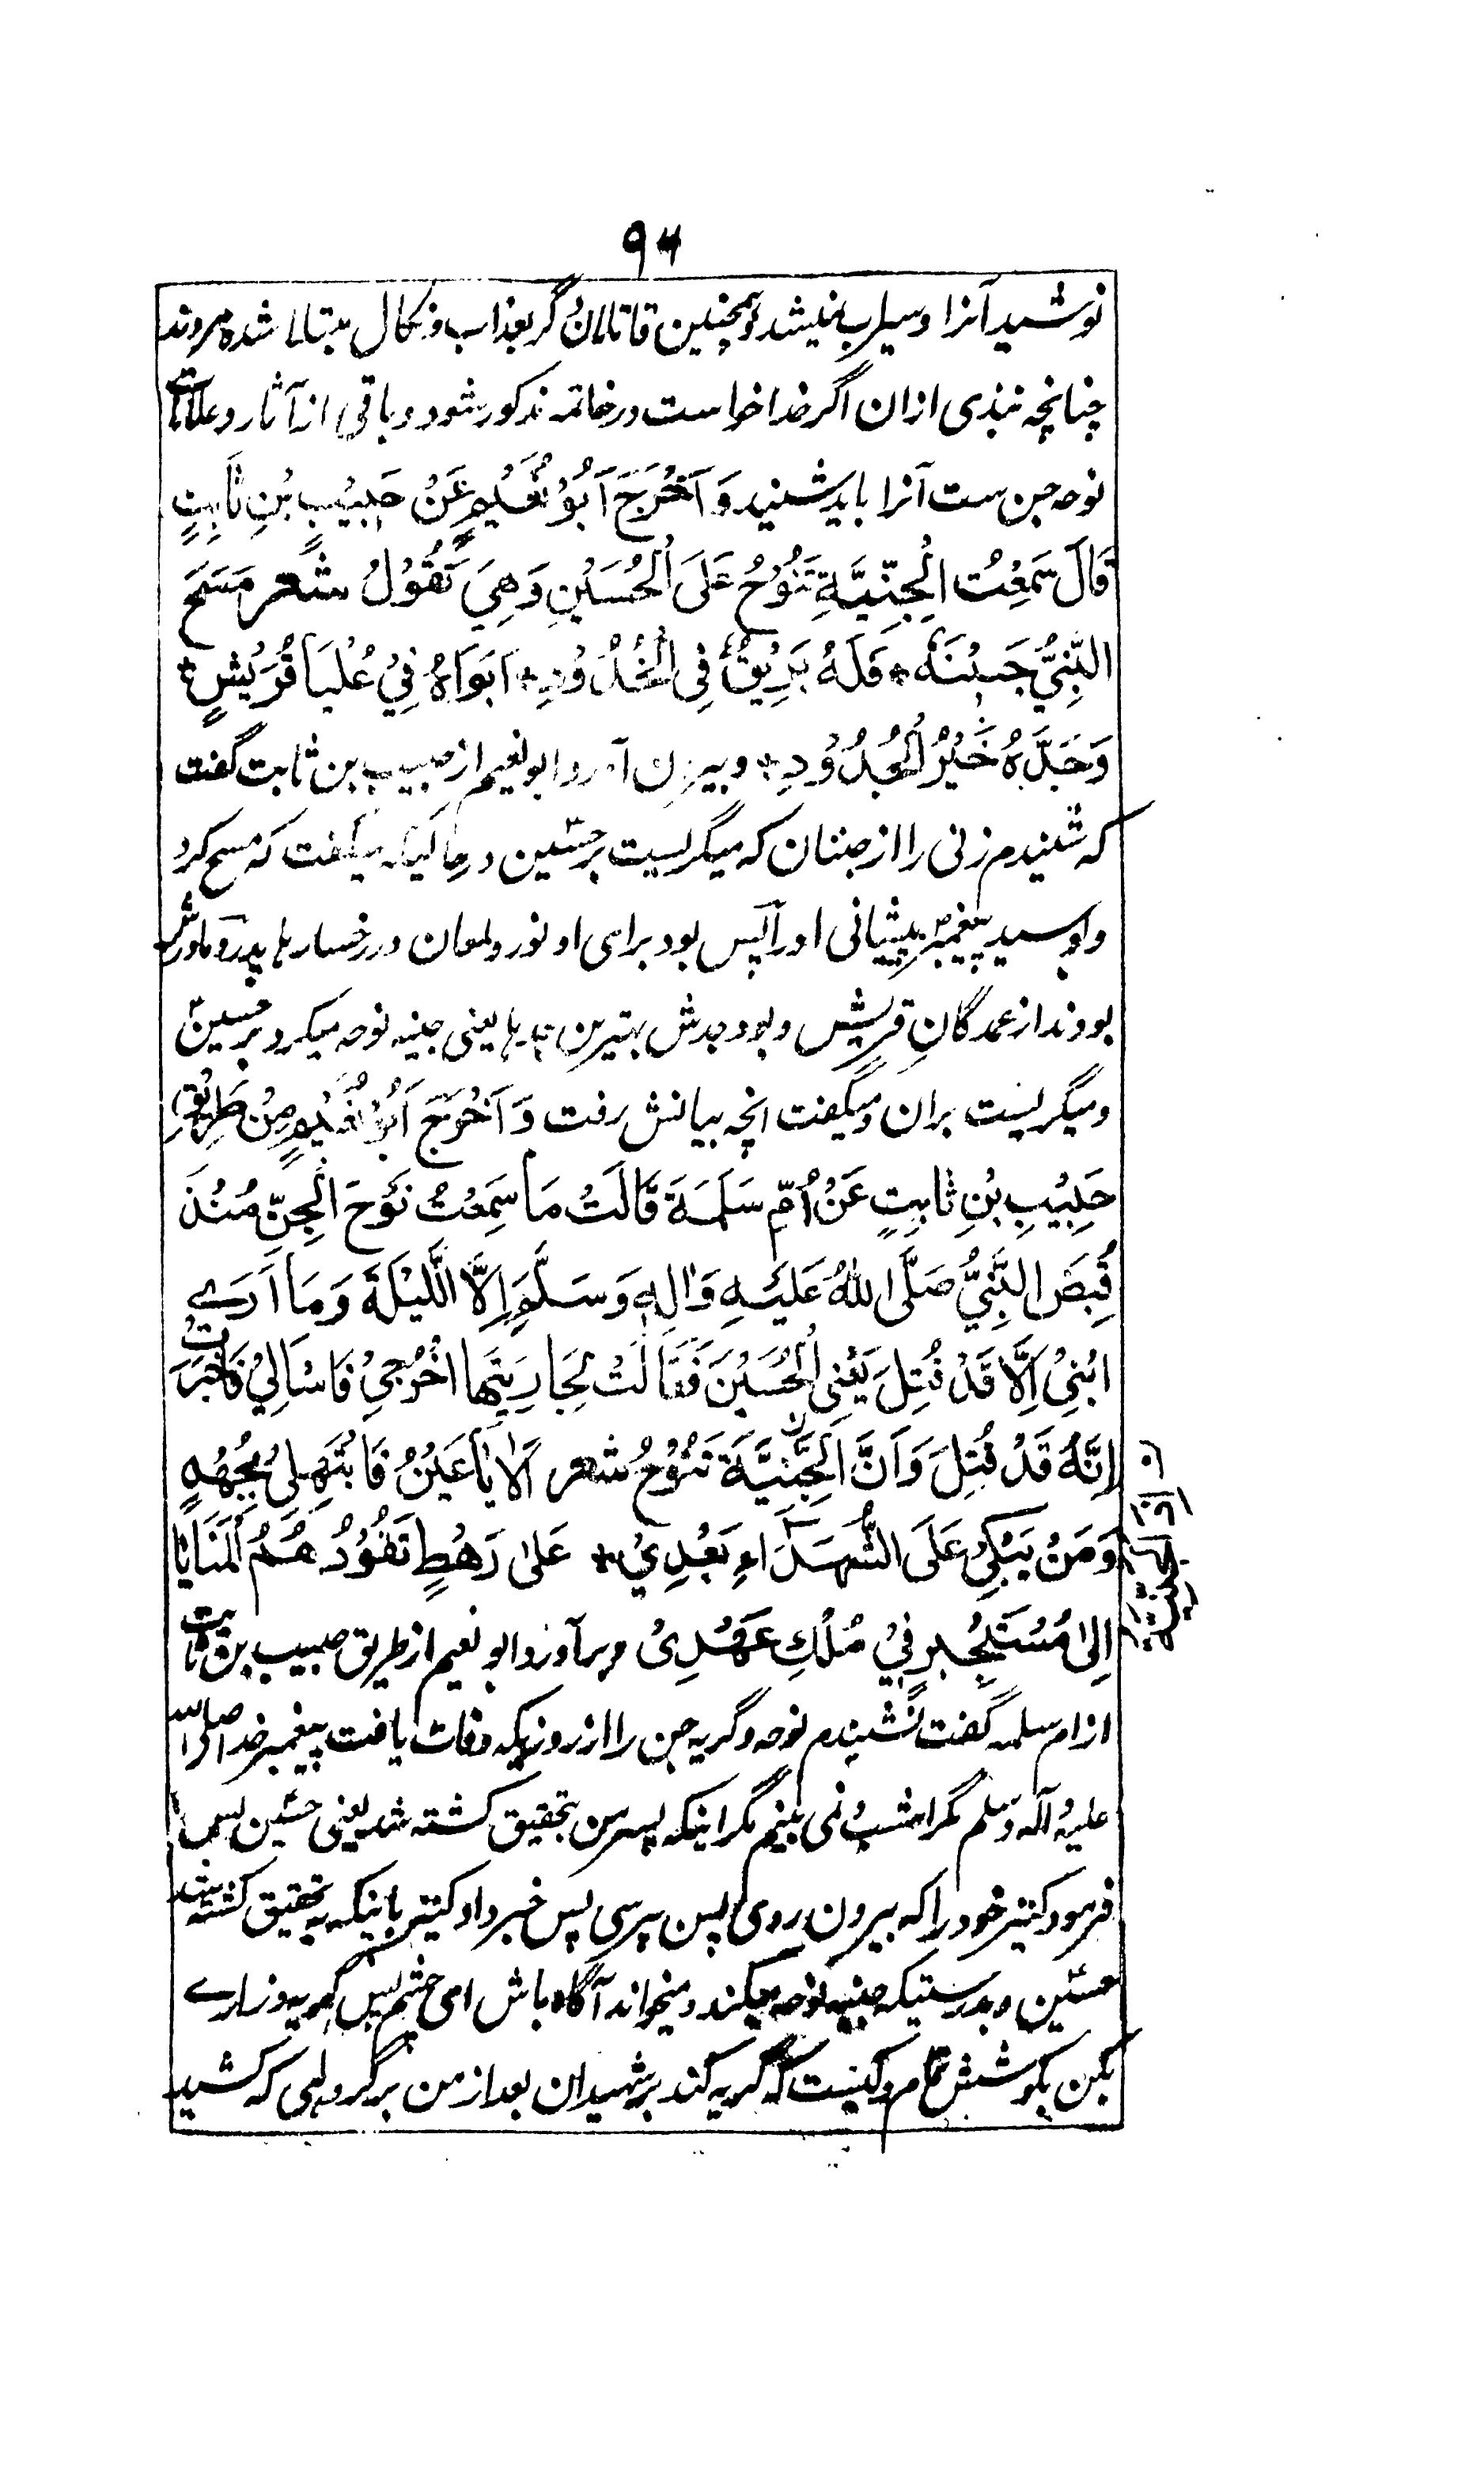 ۹۴
نوشید آنرا و سیراب نمیشد و همچنین قاتلان دیگر بعذاب و نکال مبتلا شده مردند
چنانچه نبذی ازان اگر خدا خواست در خاتمه مذکور شود و باقی از آثار و علامات
نوحه جن ست آنرا باید شنید وَاَخْرَجَ اَبُوْ نُعَيْمٍ عَنْ حَبِيْبِ بْنِ ثَابِتٍ
قَالَ سَمِعْتُ الْجِنِّيَّةَ تَنُوْحُ عَلَى الْحُسَيْنِ وَهِيَ تَقُوْلُ شعر مَسَحَ
النَّبِيُّ جَبِيْنَهٗ * فَلَهُ بَرِيْقٌ فِي الْخُدُوْدِ * اَبَوَاهُ فِيْ عُلْيَا قُرَيْشٍ *
وَجَدُّهُ خَيْرُ الْجُدُوْدِ * و بیرون آورد ابو نعیم از حبیب بن ثابت گفت
که شنیدم زنی را از جنان که میگریست بر حسین در حالیکه میگفت که مسح کرد
و بوسید پیغمبر پیشانی او را پس بود برای او نور و لمعان در رخسارها پدر و مادرش
بودند از عمدگان قریش و بود جدش بهترین جدها یعنی جنیه نوحه میکرد بر حسین
و میگریست بران و میگفت انچه بیانش رفت وَاَخْرَجَ اَبُوْ نُعَيْمٍ مِنْ طَرِيْقِ
حَبِيْبِ بْنِ ثَابِتٍ عَنْ اُمِّ سَلَمَةَ قَالَتْ مَا سَمِعْتُ نَوْحَ الْجِنِّ مُنْذُ
قُبِضَ النَّبِيُّ صَلَّى اللهُ عَلَيْهِ وَاٰلِهٖ وَسَلَّمَ اِلَّا اللَّيْلَةَ وَمَا اَرَے
ابْنِيْ اِلَّا قَدْ قُتِلَ يَعْنِي الْحُسَيْنَ فَقَالَتْ لِجَارِيَتِهَا اخْرُجِيْ فَاسْاَلِيْ فَاَخْبَرَتْ
اِنَّهٗ قَدْ قُتِلَ وَاَنَّ الْجِنِّيَّةَ تَنُوْحُ شعر اَلَا يَا عَيْنُ فَابْتَهِلِيْ بِجُهْدٍ
وَمَنْ يَبْكِيْ عَلَى الشُّهَدَاءِ بَعْدِيْ * عَلٰى رَهْطٍ تَقُوْدُ هُمُ الْمَنَايَا
اِلٰى مُتَجَبِّرٍ فِيْ مُلْكِ عَهْدِيْ و برآورد ابو نعیم از طریق حبیب بن ثابت
از ام سلمه گفت نشنیدم نوحه و گریه جن را از روزیکه وفات یافت پیغمبر خدا صلی الله
علیه و آله و سلم مگر امشب و نمی بینم مگر اینکه پسر من بتحقیق کشته شد یعنی حسین پس
فرمود کنیز خود را که بیرون روی پس بپرسی پس خبر داد کنیز باینکه به تحقیق کشته شد
حسین و بدرستیکه جنیه نوحه میکند و میخواند آگاه باش ای چشم پس گریه و زارے
بکن بکوشش تمام و کیست که گریه کند بر شهیدان بعد از من بر گروهی که کشید